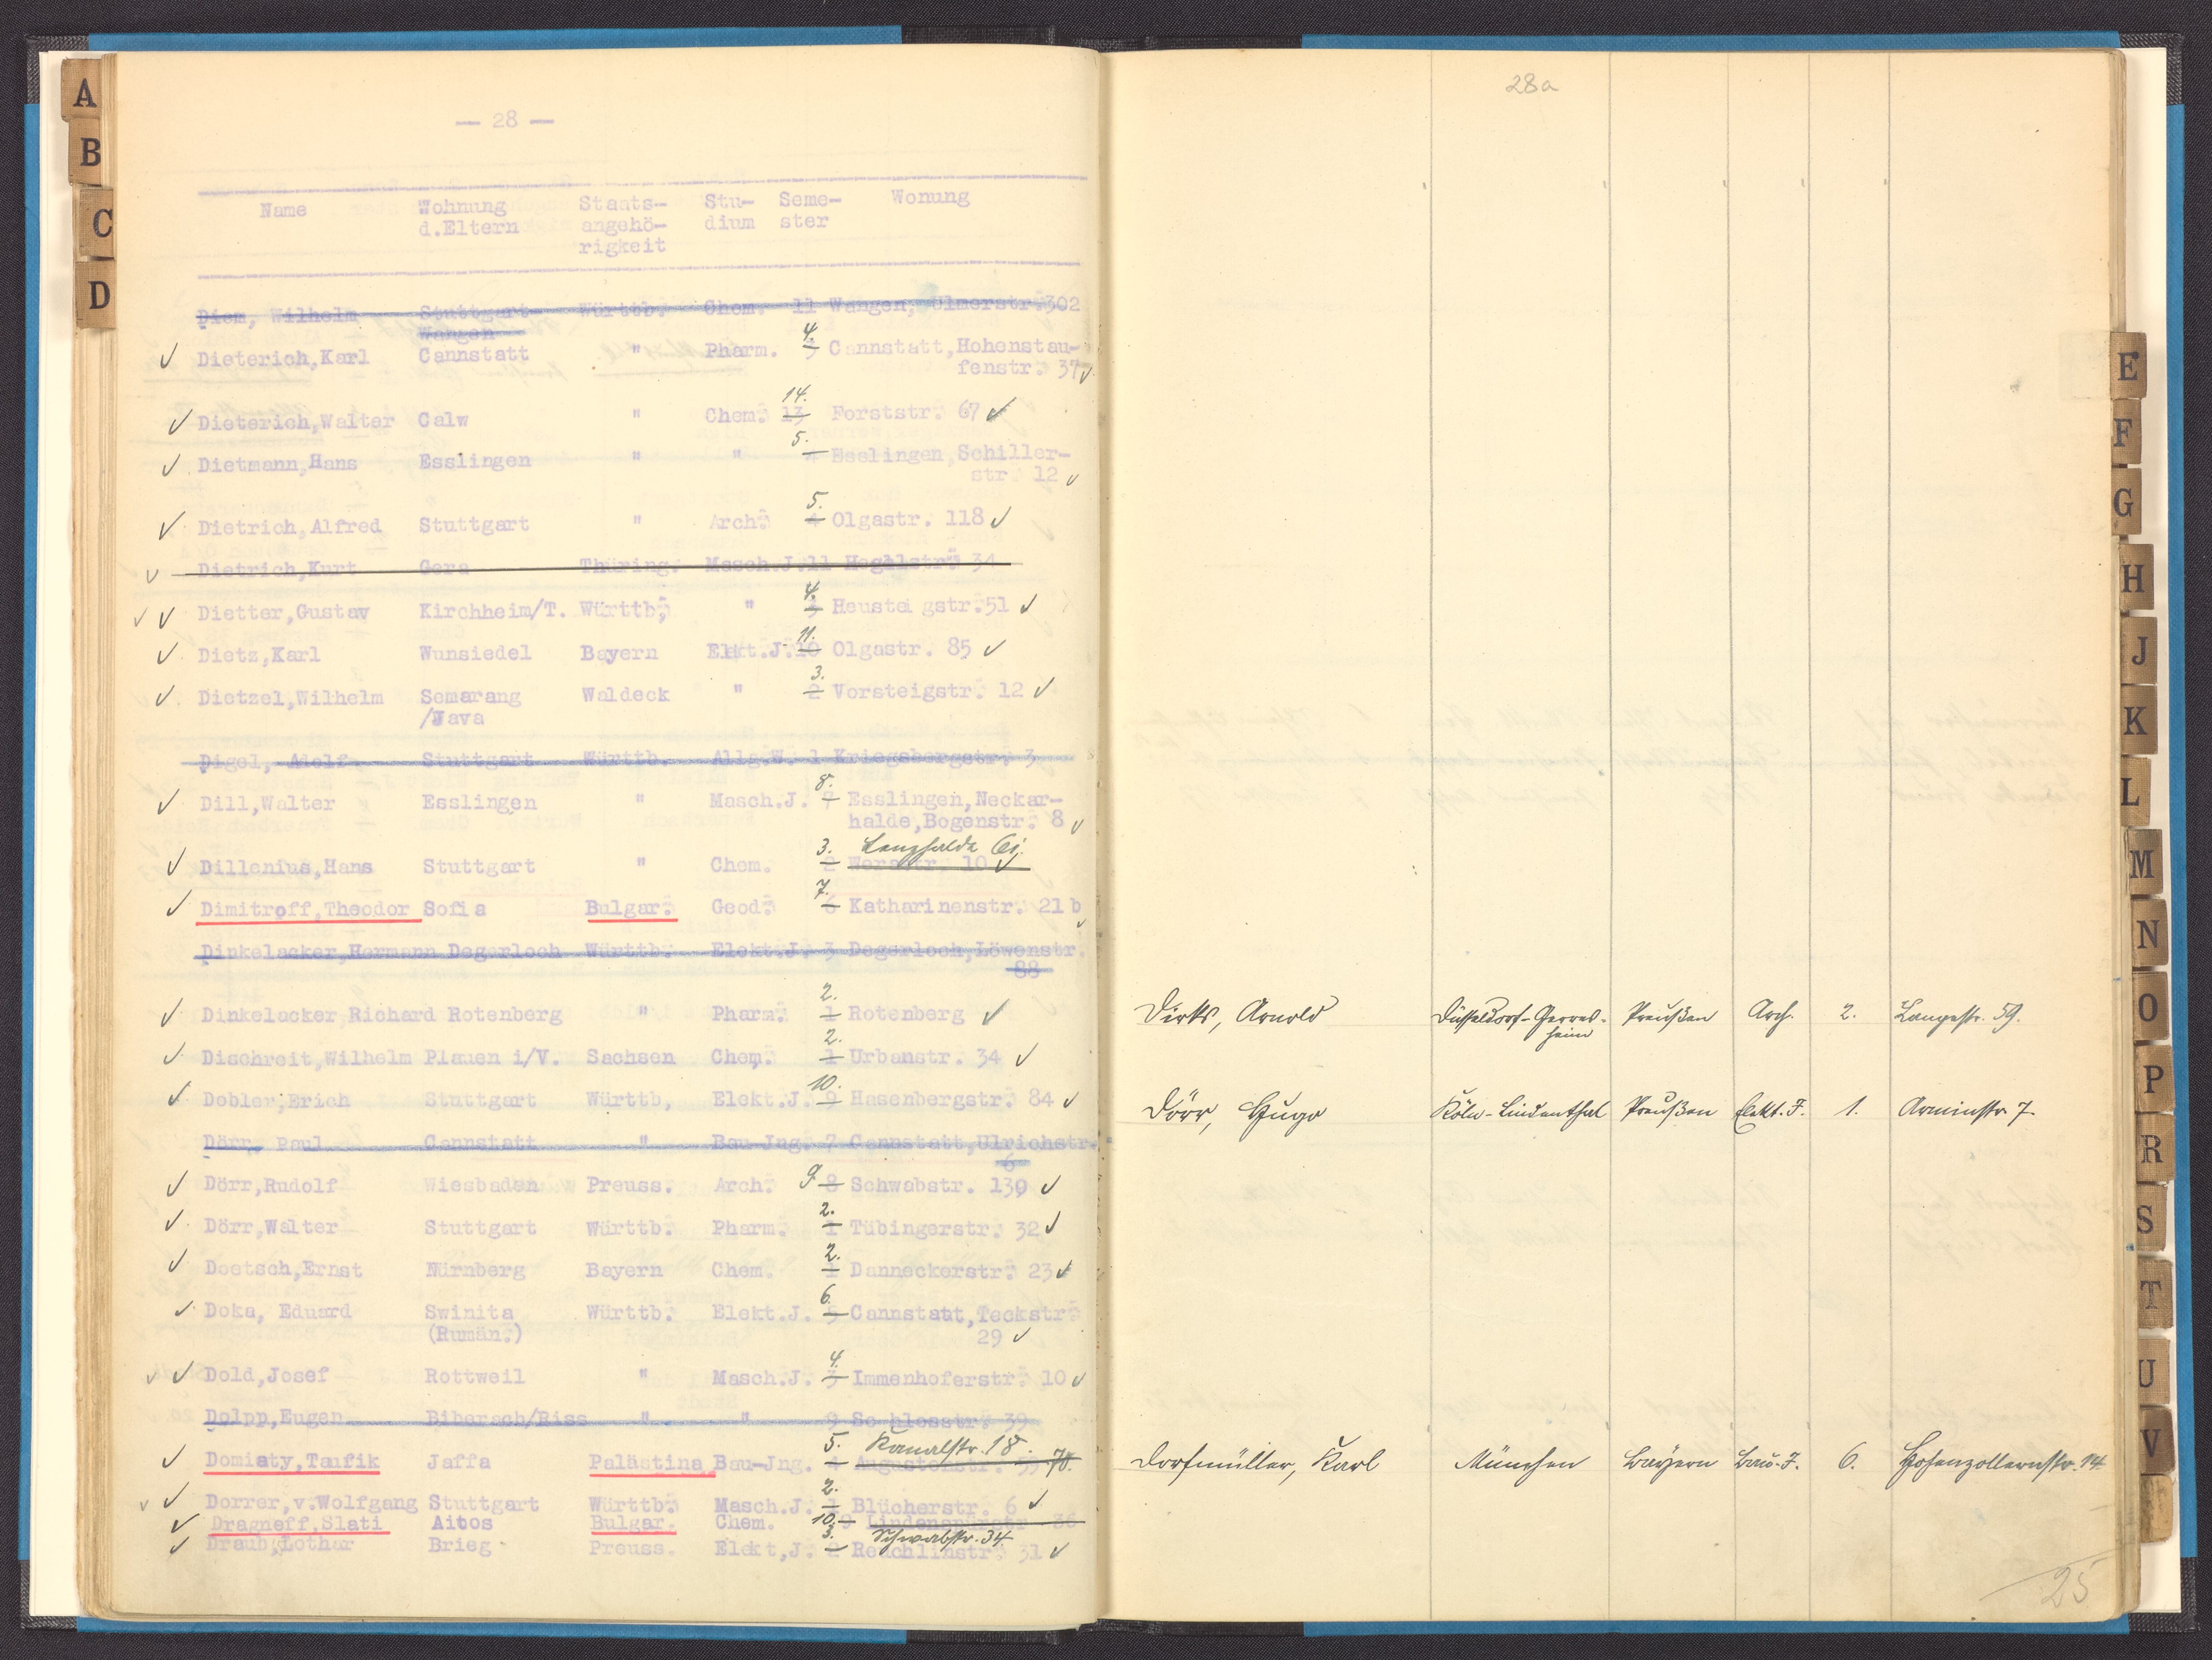 — 28 —
Name Wohnung Staats- Stu- Seme- Wonung
d.Eltern angehö- dium ster
rigkeit
Diem, Wilhelm Stuttgart- Württb. Chem. 11 Wangen, Ulmerstr. 302
Wangen
4.
Dieterich,Karl Cannstatt " Pharm. 3 Cannstatt,Hohenstau-
fenstr. 37
14.
Dieterich,Walter Calw " Chem. 13 Forststr. 67
5.
Dietmann,Hans Esslingen " " 4 Esslingen,Schiller-
str 12
5.
Dietrich,Alfred Stuttgart " Arch. 4 Olgastr. 118
Dietrich,Kurt Gera Thüring. Masch.J.11 Hegelstr. 34
4.
Dietter,Gustav Kirchheim/T. Württb, " 3 Heustei gstr.51
11.
Dietz,Karl Wunsiedel Bayern Elkt.J.10 Olgastr. 85
3.
Dietzel,Wilhelm Semarang Waldeck " 2 Vorsteigstr. 12
/Java
Digel, Adolf Stuttgart Württb. Allg.W. 1 Kriegsbergstr. 3
8.
Dill,Walter Esslingen " Masch.J. 7 Esslingen,Neckar-
halde,Bogenstr. 8
3. Lenzhalde 61.
Dillenius,Hans Stuttgart " Chem. 2 Werastr. 10
7.
Dimitroff,Theodor Sofia Bulgar. Geod. 6 Katharinenstr. 21 b
Dinkelacker,Hermann Degerloch Württb. Elekt.J. 3 Degerloch,Löwenstr.
88
2.
Dinkelacker Richard Rotenberg " Pharm. 1 Rotenberg
2.
Dischreit,Wilhelm Plauen i/V. Sachsen Chem. 1 Urbanstr. 34
10.
Dobler,Erich Stuttgart Württb, Elekt.J. 9 Hasenbergstr. 84
Dörr, Paul Cannstatt " Bau-Jng. 7 Cannstatt,Ulrichstr.
6
Dörr,Rudolf Wiesbaden Preuss. Arch. 9 8 Schwabstr. 139
2.
Dörr,Walter Stuttgart Württb. Pharm. 1 Tübingerstr. 32
2.
Doetsch,Ernst Nürnberg Bayern Chem. 1 Danneckerstr. 23
6.
Doka, Eduard Swinita Württb. Elekt.J. 5 Cannstatt,Teckstr
(Rumän.) 29
4.
Dold,Josef Rottweil " Masch.J. 3 Immenhoferstr. 10
Dolpp,Eugen Biberach/Riss " " 9 Schlosstr. 39
5. Kanalstr. 18.
Domiaty,Taufik Jaffa Palästina Bau-Jng. 4 Augustenstr. 70.
2.
Dorrer,v.Wolfgang Stuttgart Württb. Masch.J. 1 Blücherstr. 6
Dragneff,Slati Aitos Bulgar. Chem. 10. 9 Lindenspürstr 36
3. Schwabstr. 34
Draub,Lothar Brieg Preuss. Elekt,J. 2 Reuchlinstr. 31
28a
Dirks, Arnold Düsseldorf-Gerres- Preußen Arch. 2. Langestr. 59.
heim
Dörr, Hugo Köln-Lindenthal Preußen Elekt. J. 1. Arminstr. 7
Dorfmüller, Karl München Bayern Bau-J. 6. Hohenzollernstr. 14
25
A
B
C
D
E
F
G
H
J
K
L
M
N
O
P
R
S
T
U
V